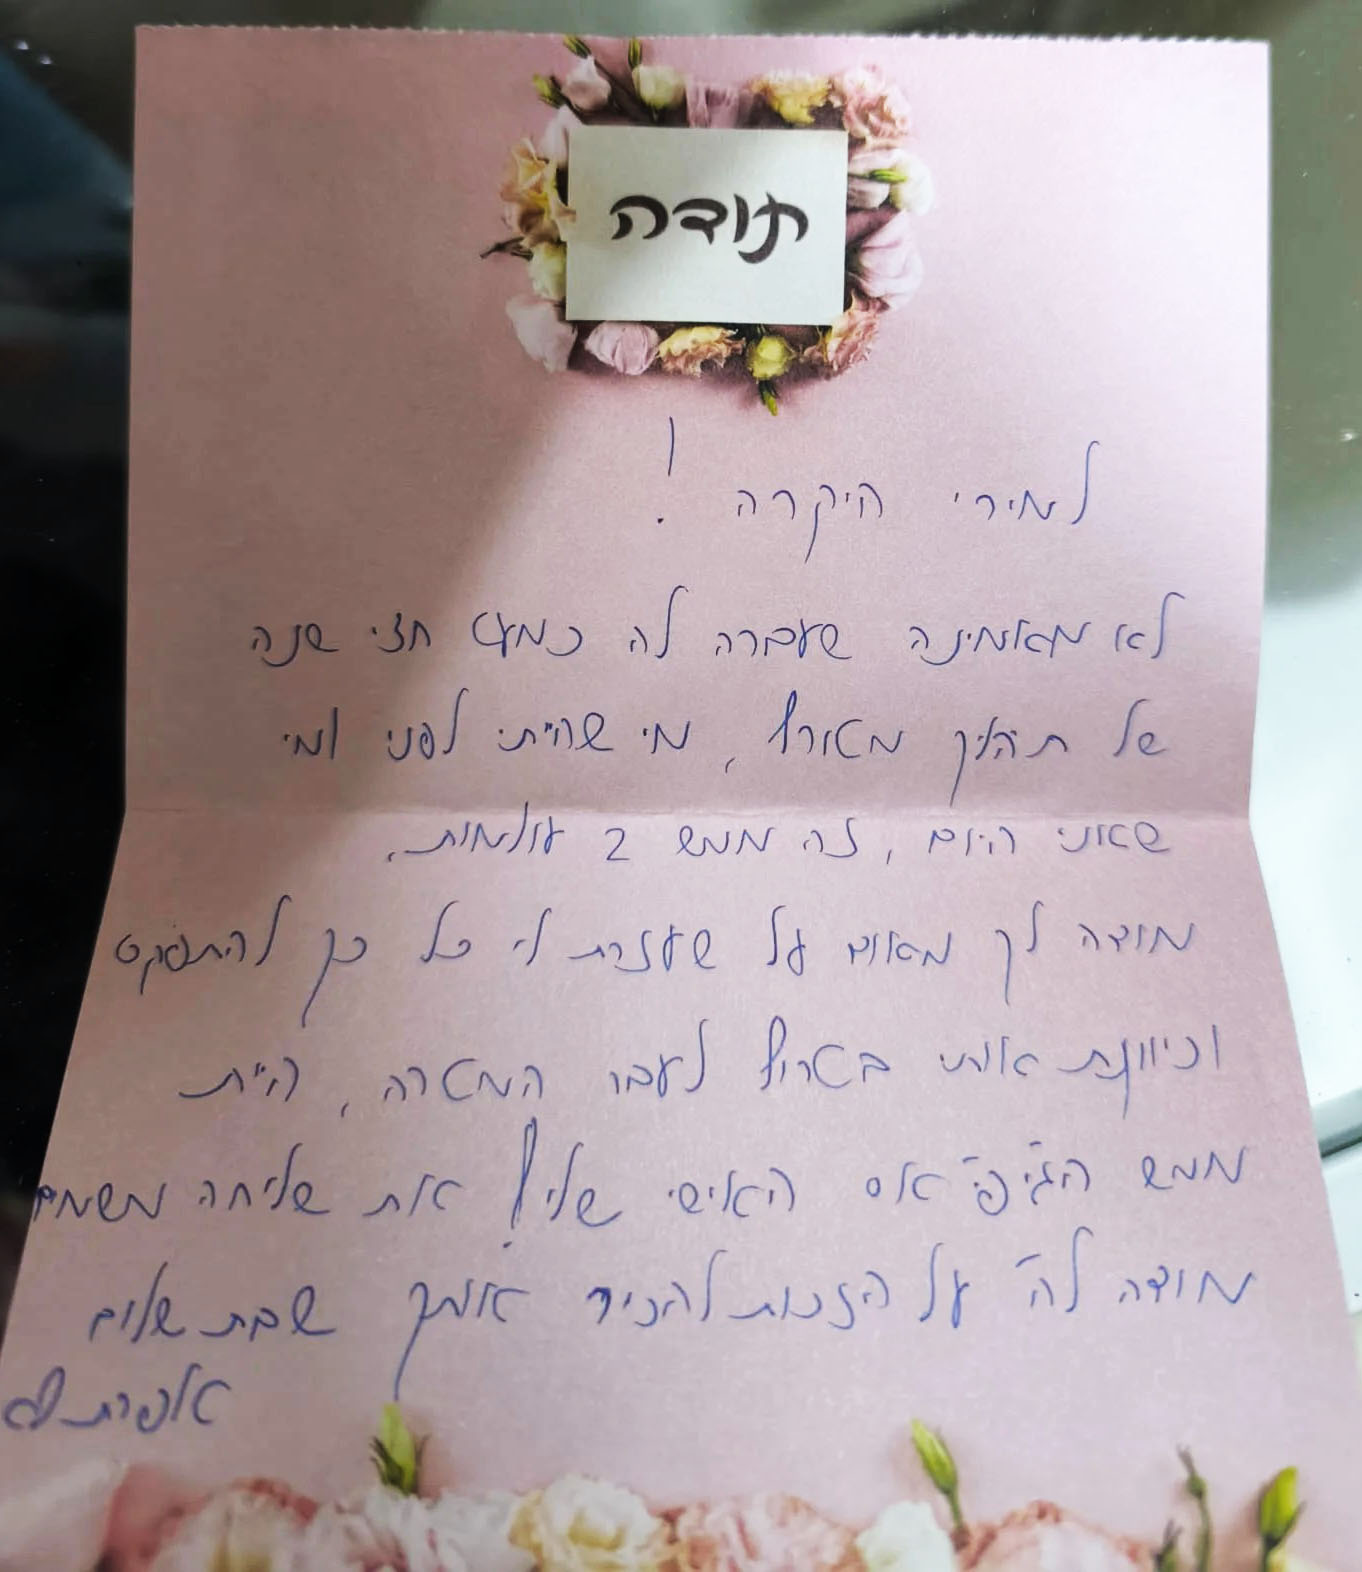 תודה
למירי היקרה!
לא מאמינה שעברה לה כמעט חצי שנה
של תהליך מטורף, מי שהייתי לפני ומי
שאני היום, זה ממש 2 עולמות.
מודה לך מאוד על שעזרת לי כל כך להתפקס
וכיוונת אותי בטירוף לעבר המטרה, היית
ממש הג'יפיאס האישי שלי! את שליחה משמים
מודה לה' על הזכות להכיר אותך שבת שלום
אפרת